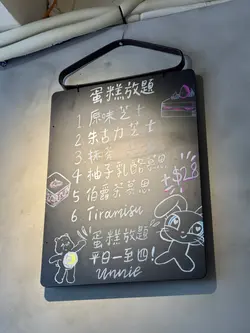 蛋糕放題
1 原味芝士
2 朱古力芝士
3 抹茶
4 柚子乳酪慕思
5 伯爵茶慕思
6 Tiramisu
+$28
蛋糕放題
平日一至四!
unnie